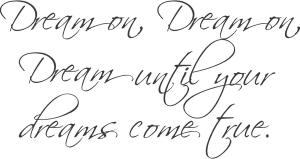 Dream on, Dream on,
Dream until your
dreams come true.